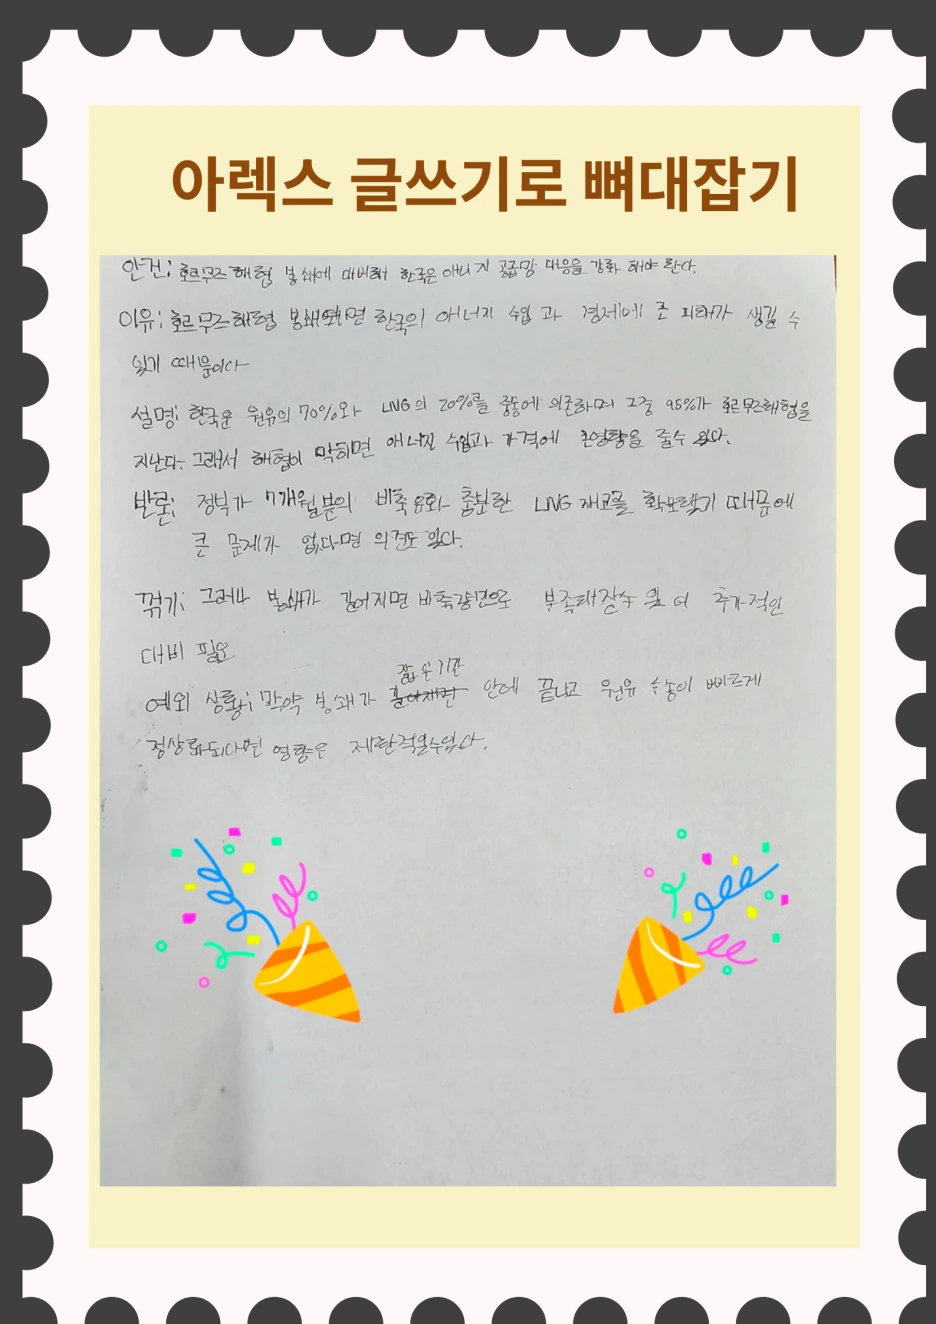 아렉스 글쓰기로 뼈대잡기
안건; 호르무즈 해협 봉쇄에 대비해 한국은 에너지 공급망 대응을 강화 해야 한다.
이유; 호르무즈해협 봉쇄된다면 한국의 에너지 수입 과 경제에 큰 피해가 생길 수
있기 때문이다
설명; 한국은 원유의 70%와 LNG의 20%를 중동에 의존하며 그중 95%가 호르무즈해협을
지난다. 그래서 해협이 막히면 에너지 수입과 가격에 큰영향을 줄수 있다.
반론; 정부가 7개월분의 비축유와 충분한 LNG 재고를 확보했기 때문에
큰 문제가 없다는 의견도 있다.
꺾기; 그러나 봉쇄가 길어지면 비축량만으로 부족해질수 있 어 추가적인
대비 필요
예외 상황; 만약 봉쇄가 짧은 기간 안에 끝나고 원유 수송이 빠르게
정상화된다면 영향은 제한적일수있다.